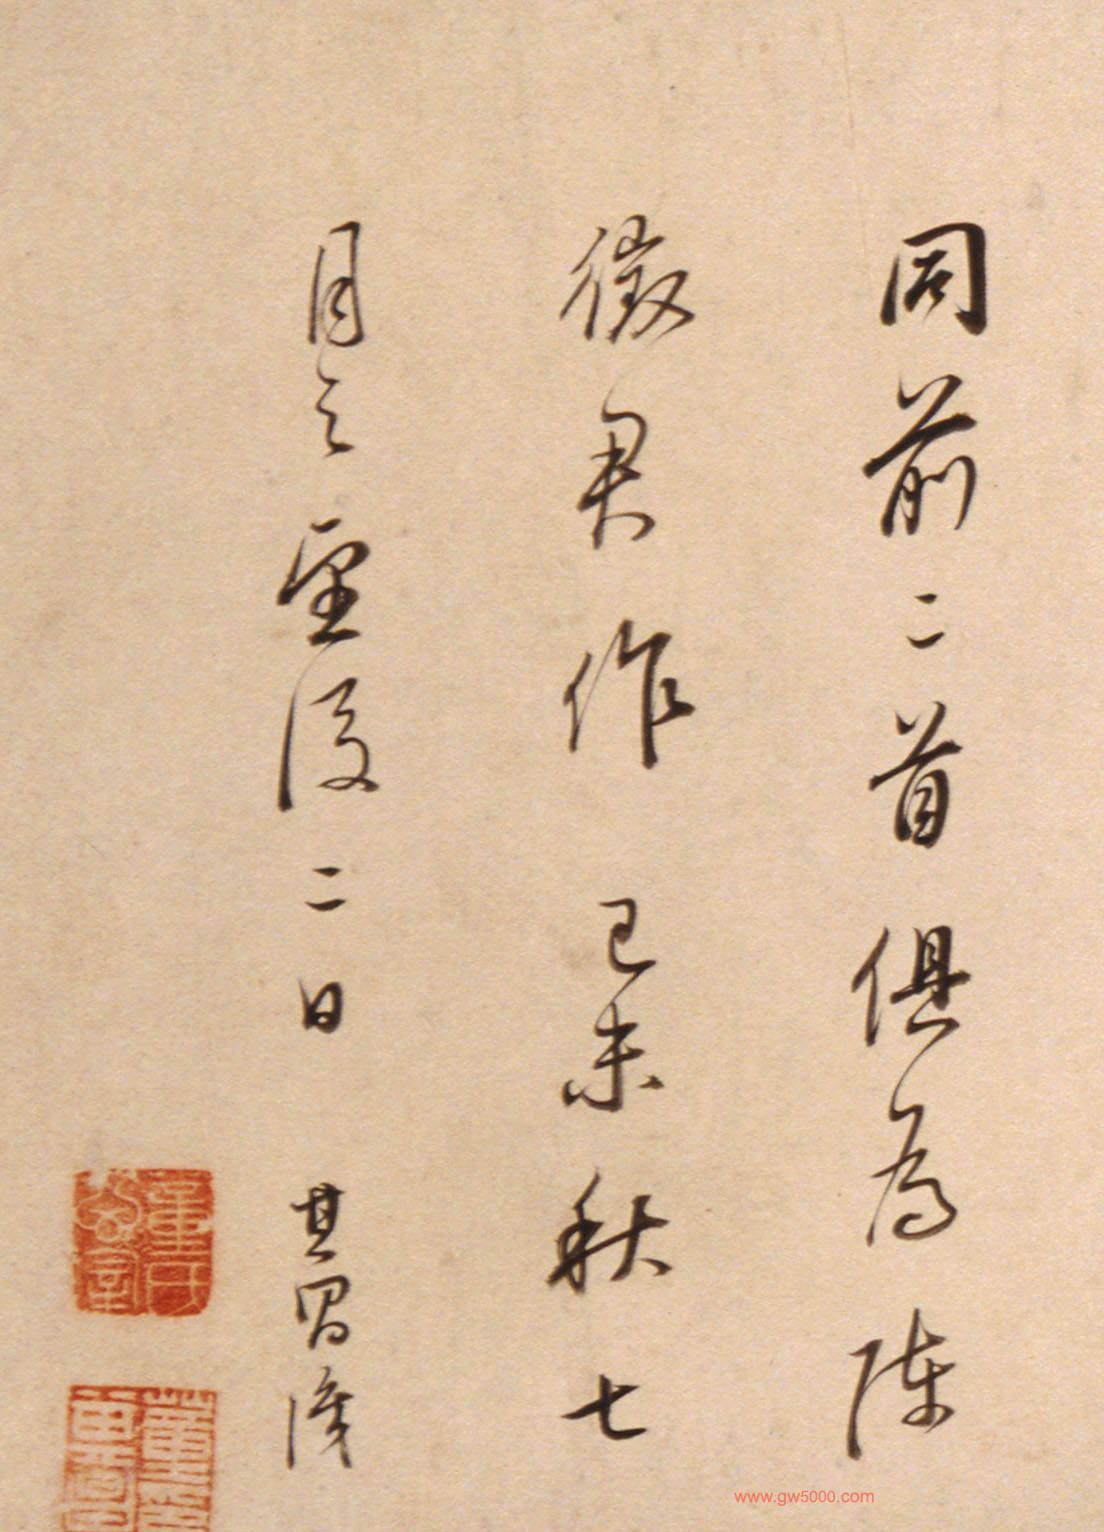 同前二首俱為陳
徵君作己未秋七
月之望後二日其昌識
www.gw5000.com